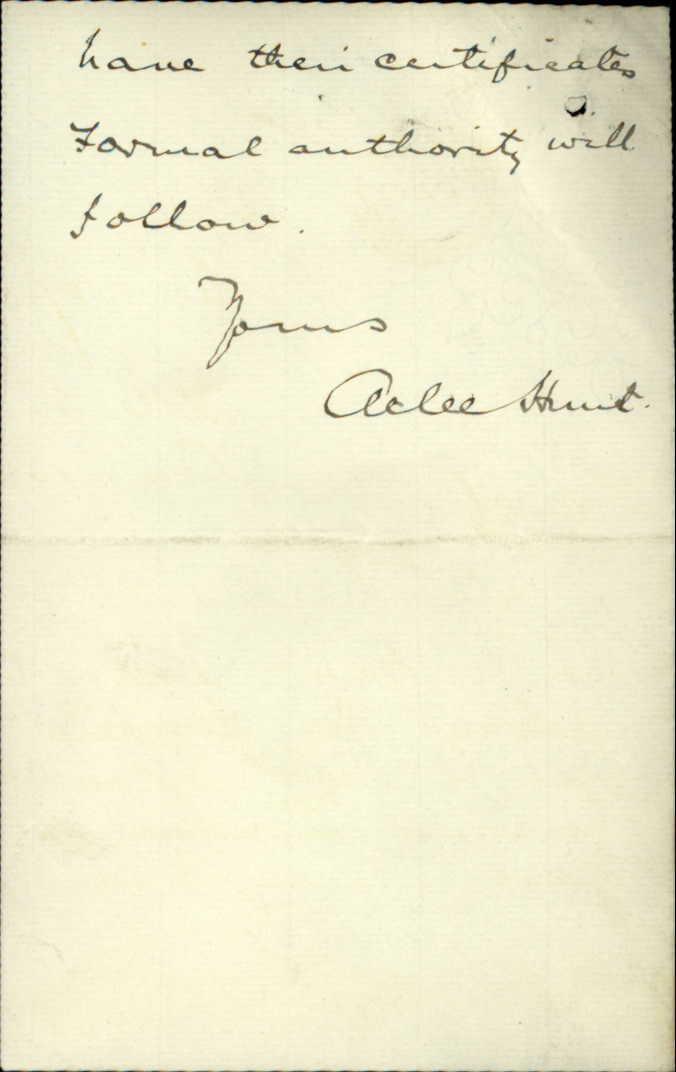 have their certificates
Formal authority will
follow.
Yours
Atlee Hunt.